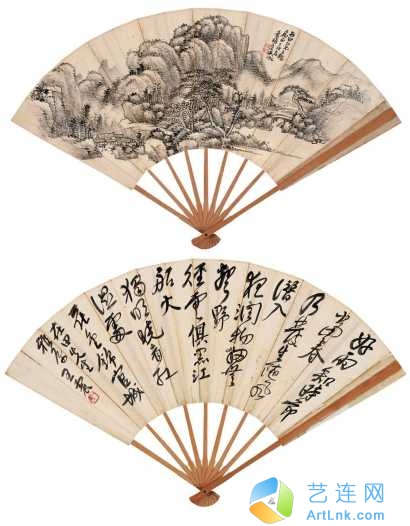 好雨
知時節當春
乃發生隨風
潛入
夜潤物細無
聲野
徑雲俱黑江
船火
獨明曉看紅
濕處
花重錦官城
先生
王震
艺连网
ArtLnk.com